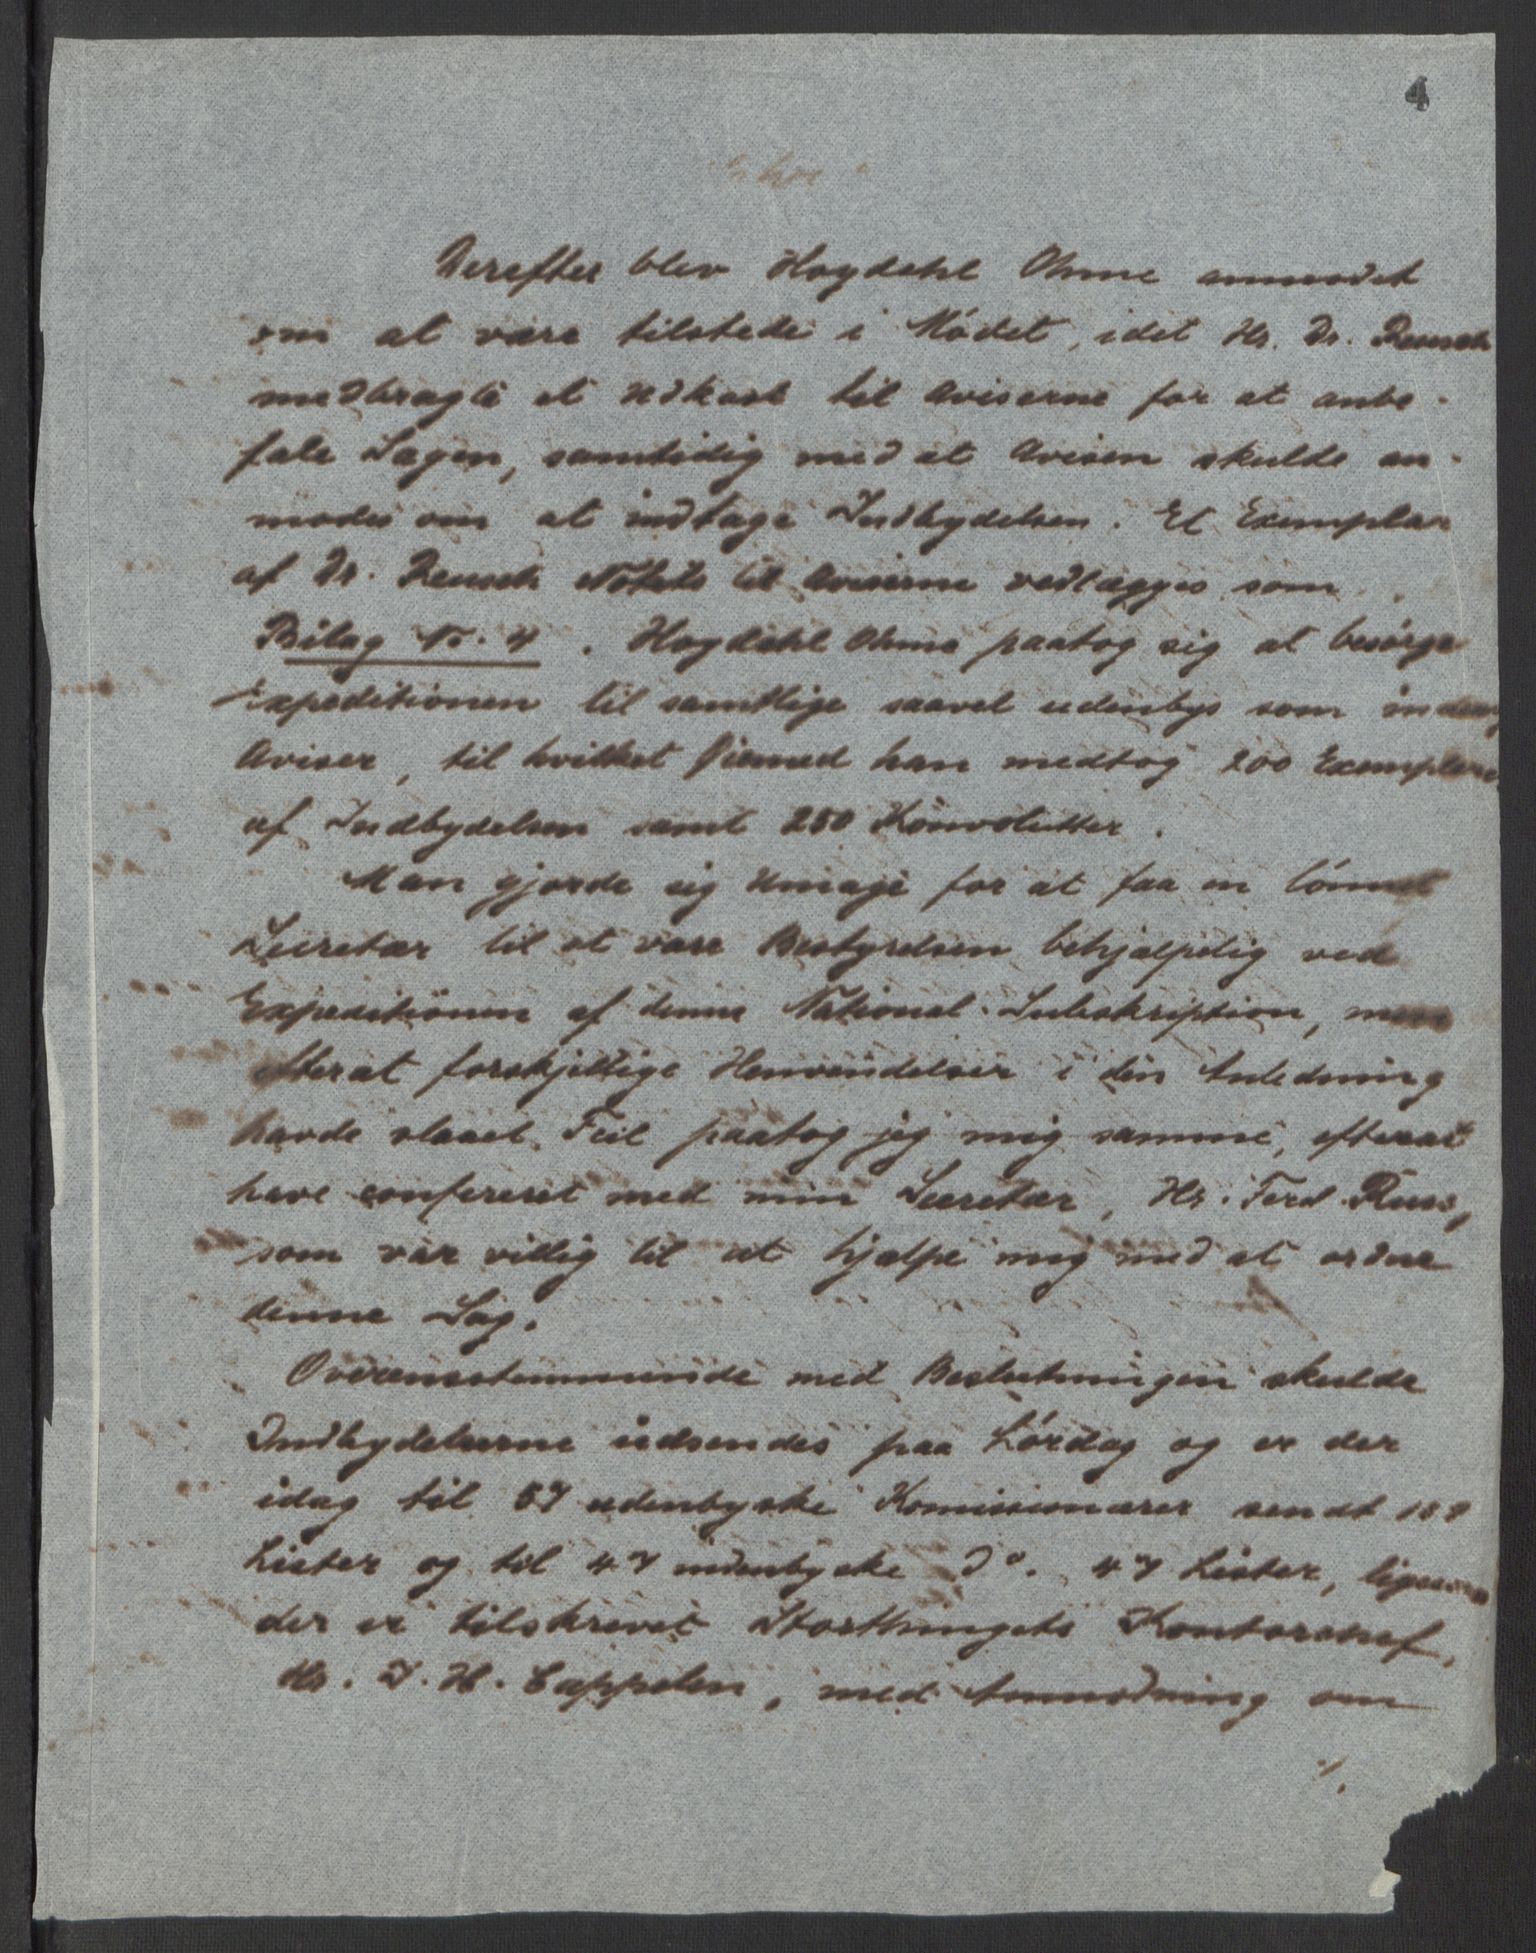 4
Derefter blev Hogdahl Ohme anmodet
om at være tilstede i Mödet, idet Hr. Dr. Reusch
medbragte et Udkast til Aviserne for at anbe-
fale Sagen, samtidig med at Avisen skulde an-
modes om at indtage Indbydelsen. Et Exemplar
af Dr. Reusch Notits til Aviserne vedlægges som
Bilag No. 4. Hogdahl Ohme paatog sig at besörge
Expeditionen til samtlige saavel udenbys som indenbys
Aviser, til hvilket Öiemed han medtog 200 Exemplarer
af Indbydelsen samt 250 Konvolutter.
Man gjorde sig Umage for at faa en lönnet
Secretær til at være Bestyrelsen behjælpelig ved
Expeditionen af denne National-Subskription, men
efterat forskjellige Henvendelser i den Anledning
havde slaaet Feil paatog jeg mig samme, efterat
have confereret med min Secretær, Hr. Ferd. Ruus,
som var villig til at hjælpe mig med at ordne
denne Sag.
Overensstemmende med Beslutningen skulde
Indbydelserne udsendes paa Lördag og er der
idag til 57 udenbyske Komissionærer sendt 189
Lister og til 47 indenbyske Do. 47 Lister, ligesom
der er tilskrevet Storthingets Kontorchef,
Hr. D. H. Cappelen, med Anmodning om
./.